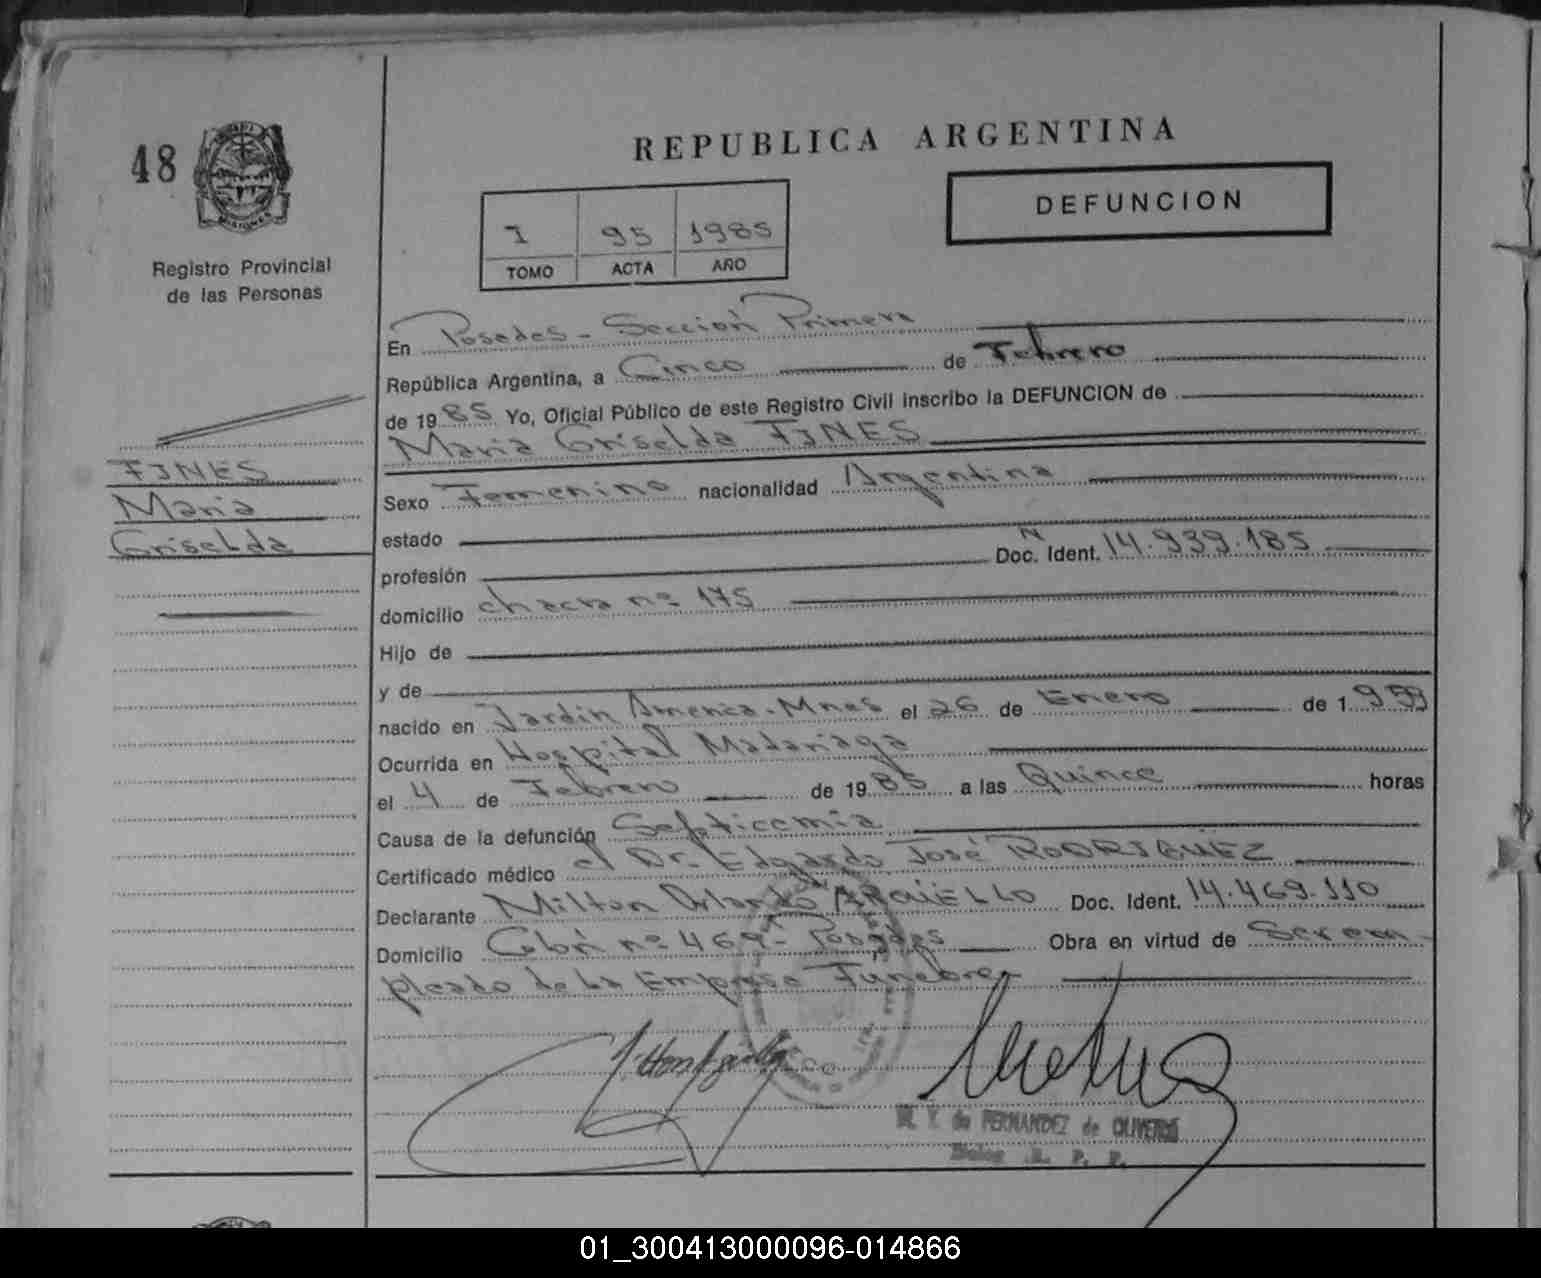 REPUBLICA ARGENTINA
48
DEFUNCION
I 95 1985
TOMO ACTA AÑO
Registro Provincial
de las Personas
En Posadas - Sección Primera
República Argentina, a Cinco de Febrero
de 1985 Yo, Oficial Público de este Registro Civil inscribo la DEFUNCION de
Maria Griselda FINES
FINES
Maria
Griselda
Sexo Femenino nacionalidad Argentina
estado
profesión Doc. Ident. N 14.939.185
domicilio chacra nº 175
Hijo de
y de
nacido en Jardin America - Mnes el 26 de Enero de 1959
Ocurrida en Hospital Madariaga
el 4 de Febrero de 1985 a las Quince horas
Causa de la defunción Septicemia
Certificado médico el Dr. Edgardo José RODRIGUEZ
Declarante Milton Orlando Doc. Ident. 14.469.110
Domicilio Colón nº 469 - Posadas Obra en virtud de Ser em-
pleado de la Empresa Funebre
M. Y. de FERNANDEZ de OLIVEROS
R. P. P.
01_300413000096-014866